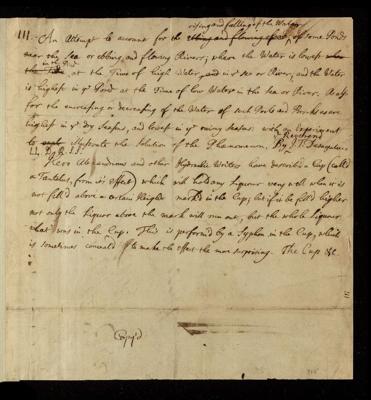 rising and falling of the Water
III. An Attempt to account for the ebbing and flowing of some Ponds
near the Sea or ebbing and flowing Rivers; where the Water is lowest
in the Pond
at the Time of high Water, and in ye Sea or River, and the Water
is highest in ye Pond at the Time of low Water in the Sea or River. As also
for the encreasing or decreasing of the Water of such Pools and Brooks as are
highest in ye dry Season, and lowest in ye rainy Season with an Experiment
to illustrate the Solution of the Phænomena. By J. T. Desaguliers
Hero Alexandrinus and other Hydraulic Writers have described a Cup (called
a Tantalus, from its effect) which will hold any Liquour very well when it is
not fill'd above a certain Height mark'd in the Cup; but if it be fill'd higher
not only the Liquor above the mark will run out, but the whole Liquour
that was in the Cup. This is performed by a Syphon in the Cup, which
is sometimes conceal'd to make the effect the more surprizing. The Cup &c
Copy'd